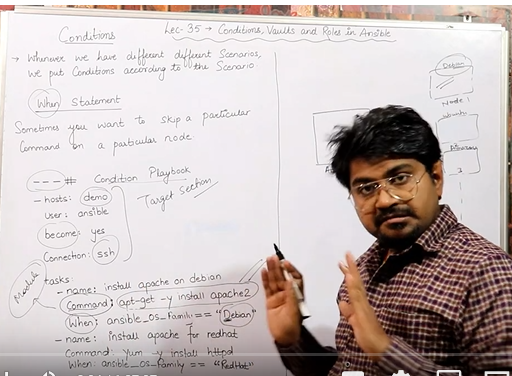 Lec-35 → Conditions, Vaults and Roles in Ansible
Conditions
→ Whenever we have different different Scenarios,
we put Conditions according to the Scenario
When Statement
Sometimes you want to skip a particular
Command on a particular node.
--- # Condition Playbook
- hosts: demo
user: ansible
become: yes
Connection: ssh
Target Section
tasks:
- name: install apache on debian
Command: apt-get -y install apache2
When: ansible_os_Family == "Debian"
- name: install apache for redhat
Command: yum -y install httpd
When: ansible_os_family == "RedHat"
Module
Debian
Node
Ubuntu